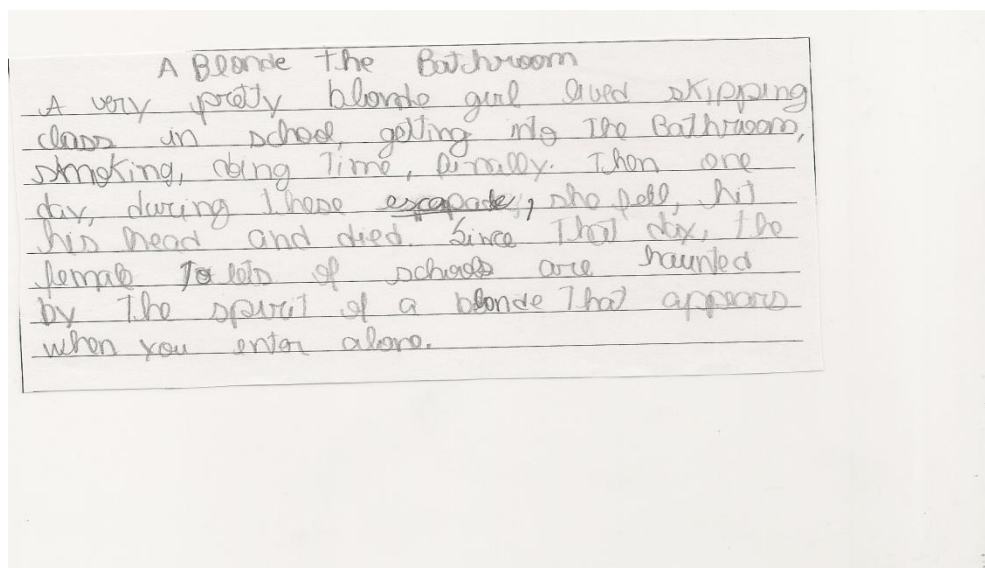 A Blonde the Bathroom
A very pretty blonde girl lived skipping
class in school, getting into the Bathroom,
smoking, doing Time, finally. Then one
day, during these escapade, she fell, hit
his head and died. Since That day, the
female Toilets of schools are haunted
by The spirit of a blonde That appears
when you enter alone.